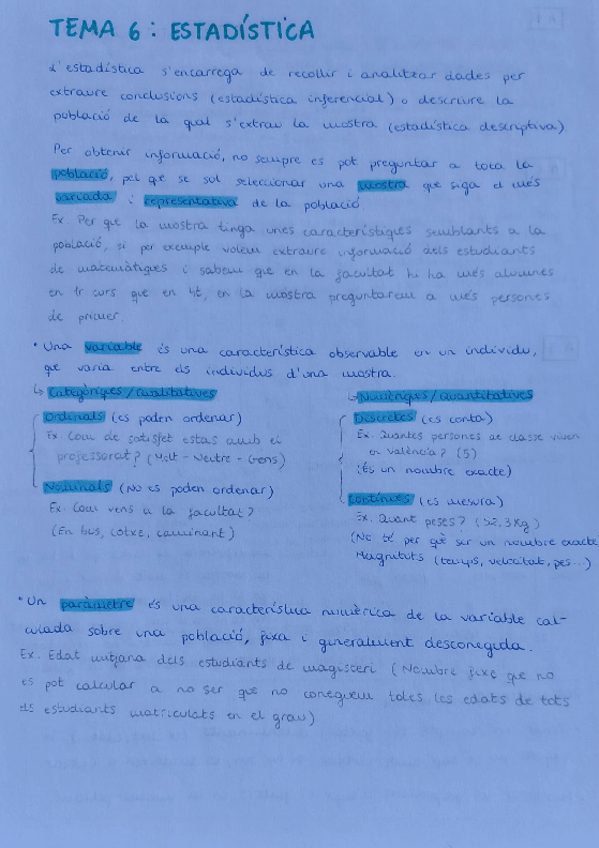 TEMA 6: ESTADÍSTICA
L'estadística s'encarrega de recollir i analitzar dades per
extraure conclusions (estadística inferencial) o descriure la
població de la qual s'extrau la mostra (estadística descriptiva)
Per obtenir informació, no sempre es pot preguntar a tota la
població, pel que se sol seleccionar una mostra que siga el més
variada i representativa de la població
Ex. Per que la mostra tinga unes característiques semblants a la
població, si per exemple volem extraure informació dels estudiants
de matemàtiques i sabem que en la facultat hi ha més alumnes
en 1r curs que en 4t, en la mostra preguntarem a més persones
de primer.
• Una variable és una característica observable en un individu,
que varia entre els individus d'una mostra.
↳ Categòriques / Qualitatives
Ordinals (es poden ordenar)
Ex. Com de satisfet estas amb el
professorat? (Molt - Neutre - Gens)
Nominals (No es poden ordenar)
Ex. Com vens a la facultat?
(En bus, cotxe, caminant)
↳ Numèriques / Quantitatives
Discretes (es conta)
Ex. Quantes persones de classe viven
en València? (5)
(És un nombre exacte)
Contínues (es mesura)
Ex. Quant peses? (52,3Kg)
(No té per què ser un nombre exacte
Magnituts (temps, velocitat, pes...)
• Un paràmetre és una característica numèrica de la variable cal-
culada sobre una població, fixa i generalment desconeguda.
Ex. Edat mitjana dels estudiants de magisteri (Nombre fixe que no
es pot calcular a no ser que no coneguem totes les edats de tots
els estudiants matriculats en el grau)